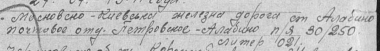 Московско-Киевская железная дорога ст Алабино
почтовое отд. Петровское-Алабино п/я 90 250
литер "02"